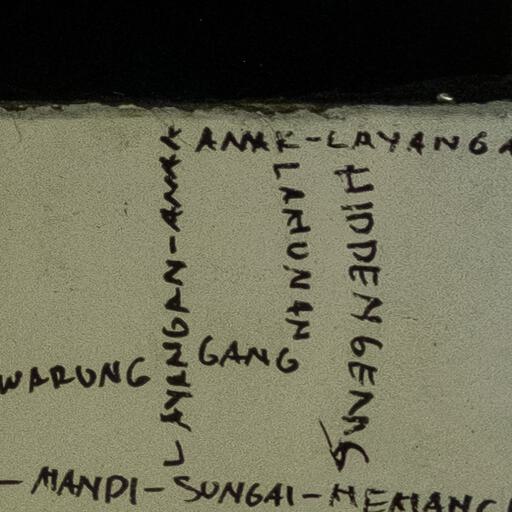 ANAK-LAYANGA
LAYANGAN-ANAK
LAMUNAN
HIDDEN GEMS
WARUNG GANG
- MANDI - SUNGAI - MEMANC